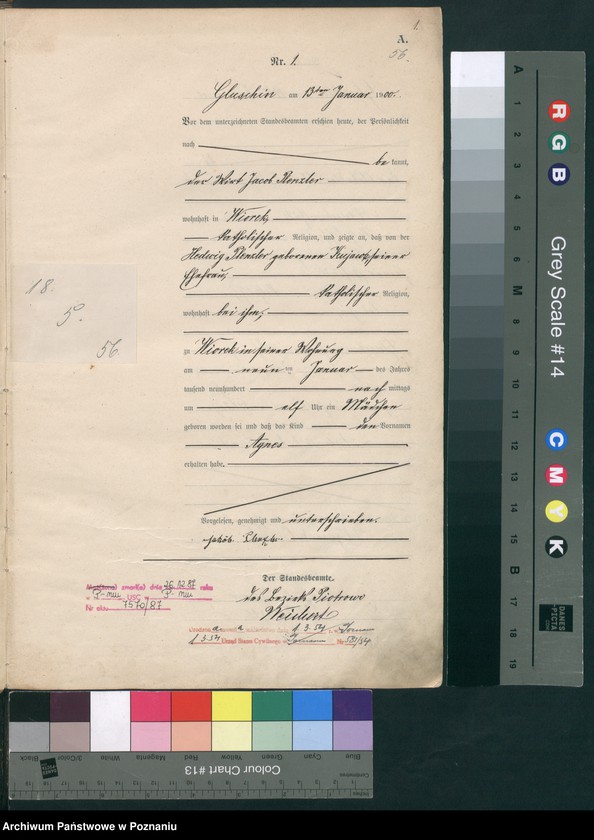 1.
A.
56.
Nr. 1.
Gluschin am 13ten Januar 1900.
Vor dem unterzeichneten Standesbeamten erschien heute, der Persönlichkeit
nach
be kannt,
der Wirt Jacob
wohnhaft in Wiorek,
katholischer Religion, und zeigte an, daß von der
Hedwig geborenen seiner
Ehefrau,
katholischer Religion,
wohnhaft bei ihm,
zu Wiorek in seiner Wohnung
am neun ten Januar des Jahres
tausend neunhundert nach mittags
um elf Uhr ein Mädchen
geboren worden sei und daß das Kind den Vornamen
Agnes
erhalten habe.
Vorgelesen, genehmigt und unterschrieben.
Der Standesbeamte.
des Bezirks Piotrowo
18.
5.
56.
zmarł(a) dnia 26.12.87 roku
w P-niu USC w P-niu
Nr aktu 7570/87
1.3.54
1.3.54 Urząd Stanu Cywilnego Nr 50/54
R
G
B
Grey Scale #14
C
M
Y
K
A 1 2 3 4 5 6 M 8 9 10 11 12 13 14 15 B 17 18 19
DANES
PICTA
Colour Chart #13
Blue Cyan Green Yellow Red Magenta White 3/Color Black
Centimetres
Inches
Archiwum Państwowe w Poznaniu